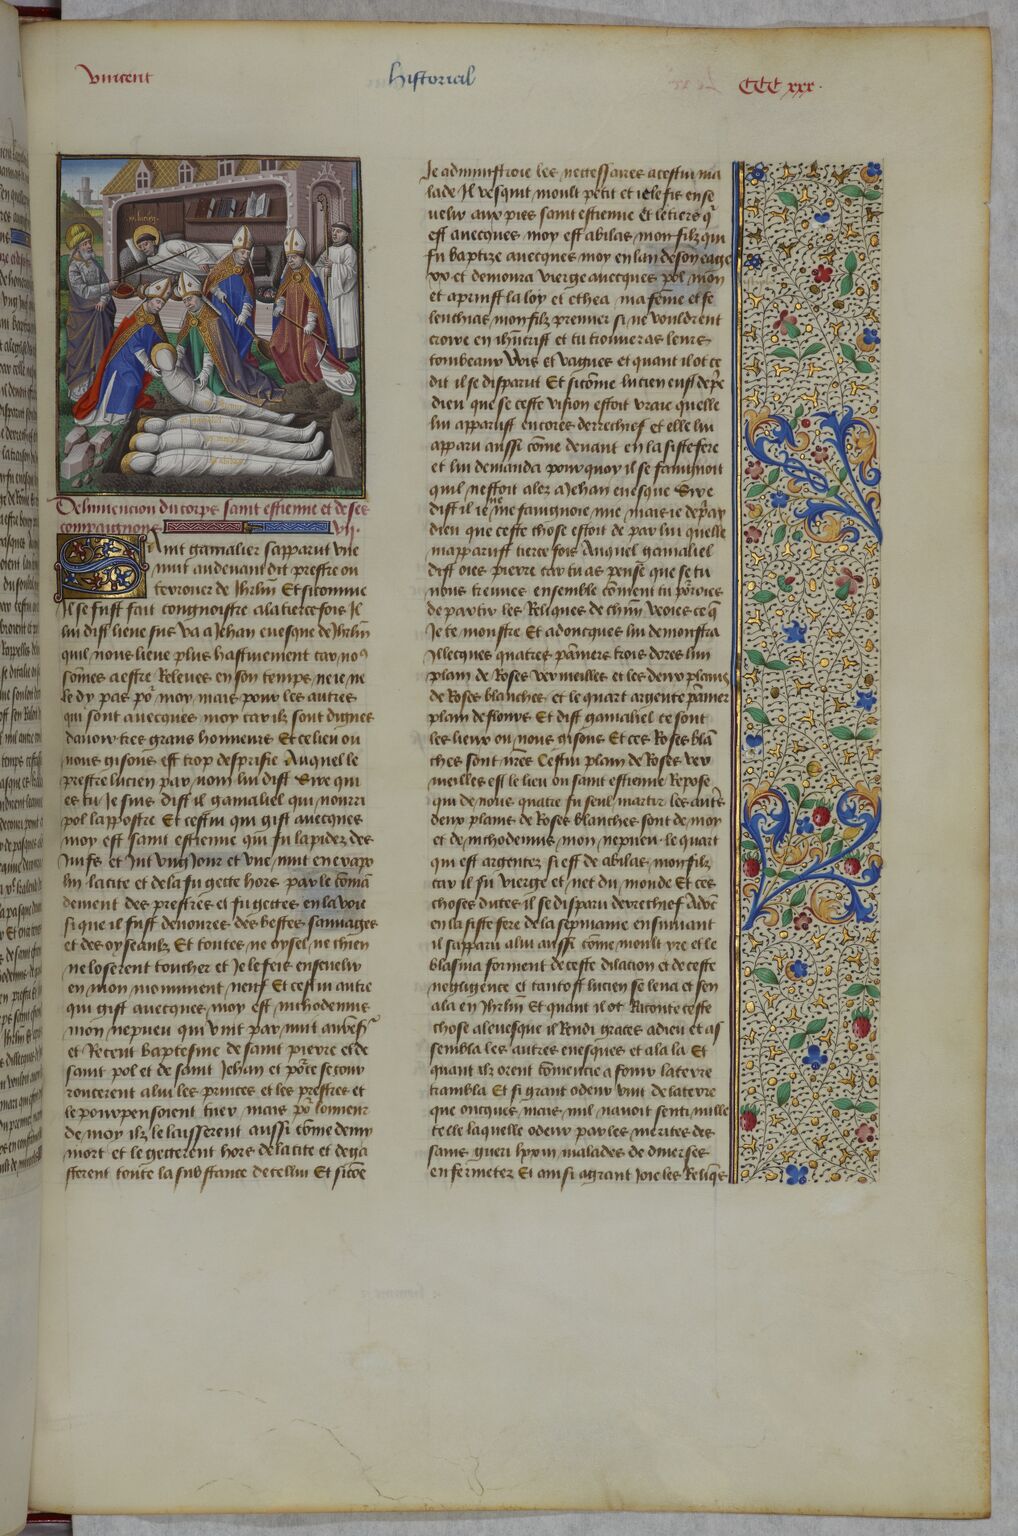 Vincent
Historial
CCC xxx.
De linuencion du corps saint estienne et de ses
compaignons vij.
Saint gamalier sapparut une
nuit audeuant dit prestre ou
terrouer de Jhrlm Et sicomme
Il se fust fait congnoistre ala tiercefois Il
lui dist lieue sus Va a Jehan euesque de Jhrlm
quil nous lieue plus hastiuement car nous
somes a estre Releues en son temps ne ie ne
le dy pas por moy mais pour les autres
qui sont auecques moy car ilz sont dignes
dauoir tres grans honneurs Et ce lieu ou
nous gisons est trop desprisie Auquel le
prestre lucien par nom lui dist Sire qui
es tu Je suis dist il gamaliel qui nourri
pol lappostre Et cestui qui gist auecques
moy est saint estienne qui fu lapidez des
Juifs et Jut vng Jour et vne nuit en
la cite et de la fu gette hors par le coman
dement des prestres et fu gettes en la voie
si que il fust deuoures des bestes sauuages
et des oyseaulz Et toutes ne oysel ne chien
ne loserent toucher et Je le feis enseuelir
en mon monument neuf Et cestui autre
qui gist auecques moy est nichodemus
mon nepueu qui vint par nuit
et Recent baptesme de saint pierre et de
saint pol et de saint Jehan et
roncerent a lui les princes et les prestres et
le pourpensoient tuer mais por lonneur
de moy ilz le laisserent aussi come demy
mort et le getterent hors de la cite et dega
sterent toute la substance de cellui Et sicoe
Je admistroie les necessaires a cestui ma
lade Il vesquit moult petit et ie le fis ense
uelir aux pies saint estienne Et le tiers qui
est auecques moy est abilas mon filz qui
fu baptize auecques moy en lan de son eage
xx et demoura vierge auecques pol mon
et aprinst la loy et ethea ma feme et se
lencias mon filz premier si ne vouldrent
croire en ihucrist et tu trouueras leurs
tombeaux vuis et vagues et quant il ot ce
dit il se disparut Et sicome lucien eust depe
dieu que se ceste vision estoit vraie quelle
lui apparust encores derrechief et elle lui
apparu aussi come deuant en la siste fere
et lui demanda pour quoy il se faingnoit
quil nestoit alez a Jehan euesque Sire
dist il ie me faingnoie mie mais ie depar
dieu que ceste chose estoit de par lui quelle
mapparust tierce fois Auquel gamaliel
dist oies pierre car tu as pense que se tu
nous treuues ensemble coment tu porroies
departir les Reliques de chun veoies ce que
Je te monstre Et adoncques lui demonstra
Illecques quatres paniers trois dores lun
plain de Roses vermeilles et les deux plains
de Roses blanches et le quart argente panier
plain de flours Et dist gamaliel ce sont
les lieux ou nous gisons Et ces Roses blan
ches sont nres Cestui plain de Roses ver
meilles est le lieu ou saint estienne Repose
qui de nous quatre fu seul martir les autres
deux plains de Roses blanches sont de moy
et de nichodemus mon nepueu le quart
qui est argentez si est de abilas mon filz
car il fu vierge et net du monde Et ces
choses dictes il se disparu derrechief Adont
en la siste fere de la sepmaine ensuiuant
il sapparu a lui aussi come moult yre et le
blasma forment de ceste dilacion et de ceste
negligence et tantost lucien se leua et sen
ala en Jhrlm Et quant il ot Raconte ceste
chose a leuesque il Rendi graces a dieu et as
sembla les autres euesques et ala la Et
quant ilz orent comencie a fouir la terre
trambla Et si grant odeur vint de la terre
que oncques mais nul nauoit senti nulle
telle laquelle odeur par les merites des
sains gueri lxxiii malades de diuerses
enfermetez Et ainsi a grant Joie les Reliques